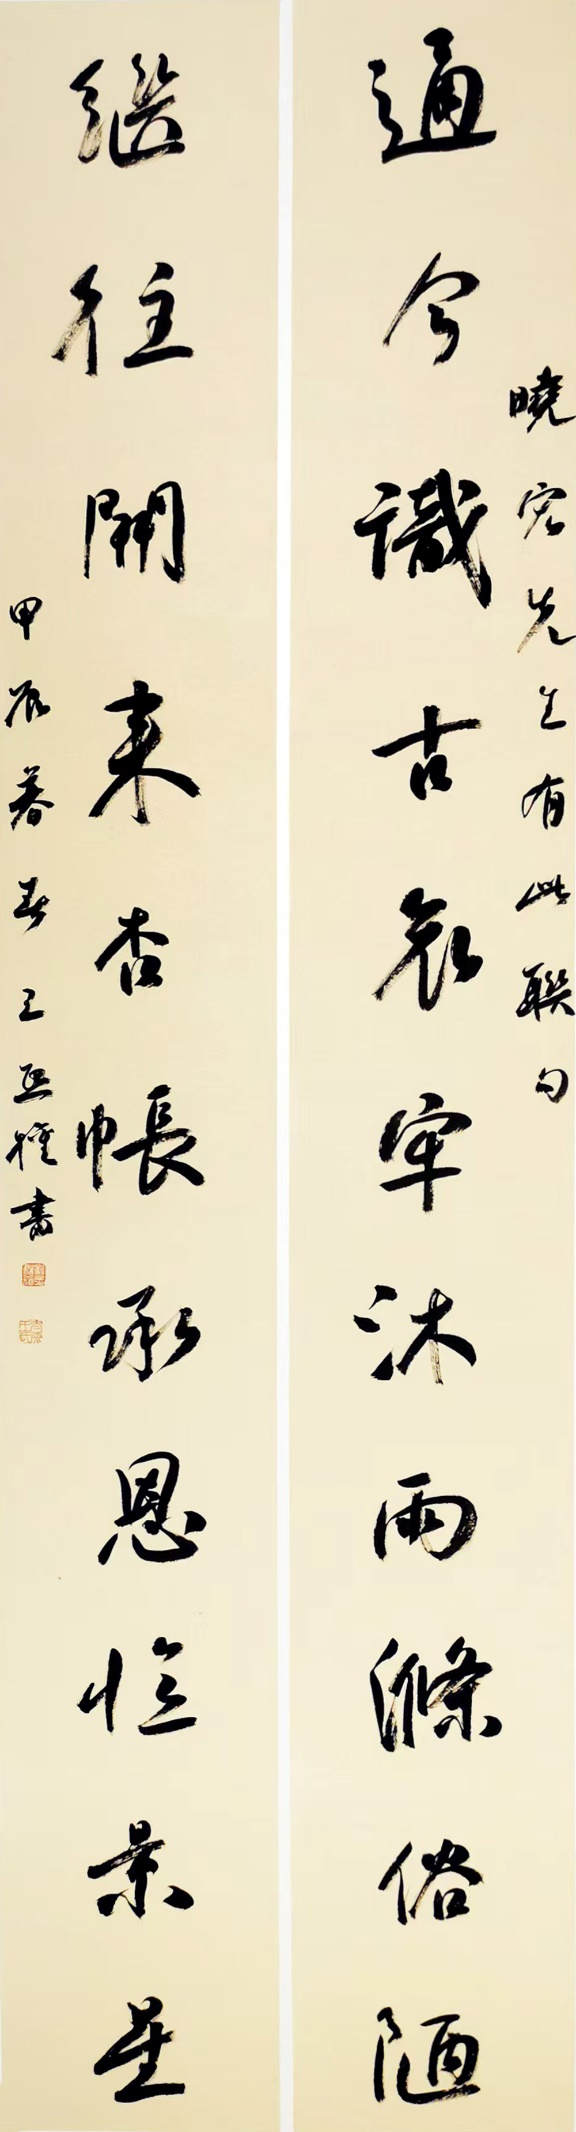 曉宏先生有此聯句
通今識古哀牢沐雨滌俗陋
繼往開來杏帳承恩憶景星
甲辰暮春王亞書